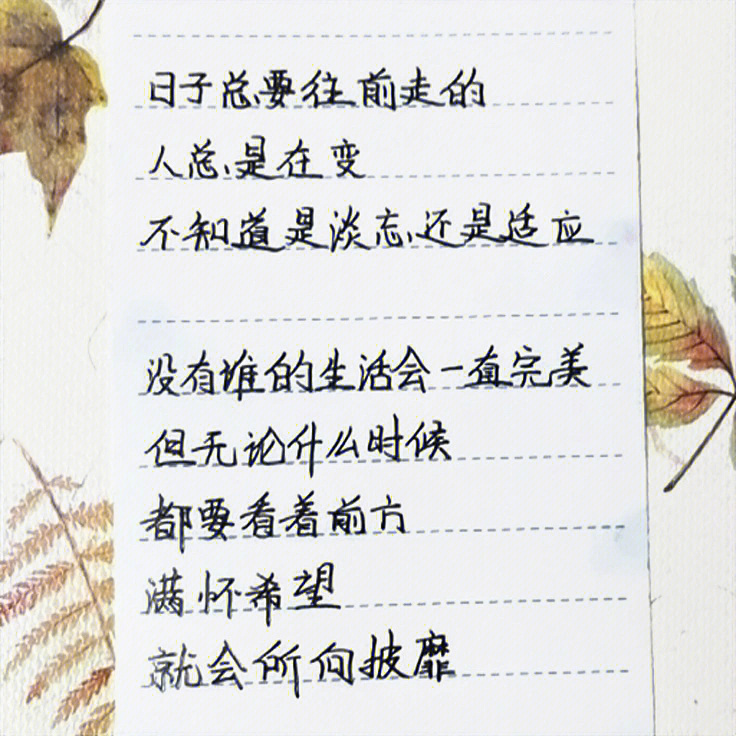 日子总要往前走的
人总是在变
不知道是淡忘还是适应
没有谁的生活会一直完美
但无论什么时候
都要看着前方
满怀希望
就会所向披靡